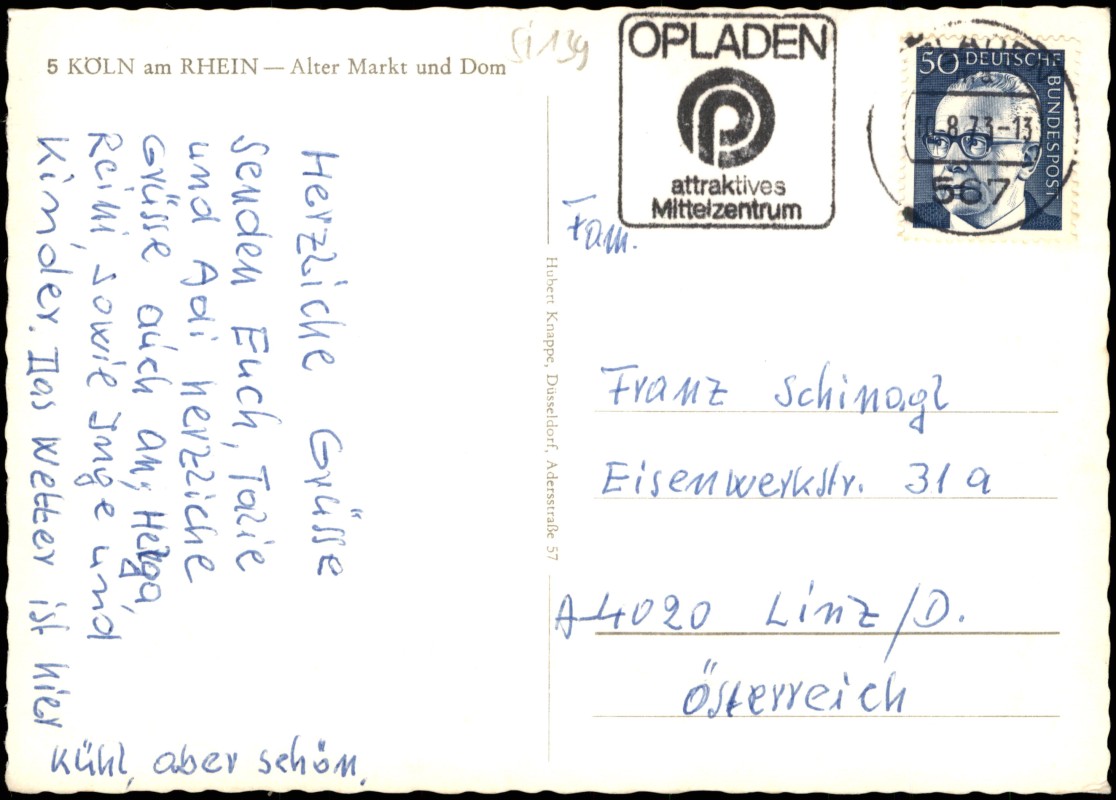 5 KÖLN am RHEIN — Alter Markt und Dom
Si 139
Herzliche Grüsse
senden Euch,
und Adi herzliche
Grüsse auch an, Helga,
Reini, sowie Inge und
Kinder. Das Wetter ist hier
kühl, aber schön.
Hubert Knappe, Düsseldorf, Adersstraße 57
OPLADEN
attraktives
Mittelzentrum
50 DEUTSCHE BUNDESPOST
8.73-13
567
Fam.
Franz Schinagl
Eisenwerkstr. 31a
A-4020 Linz/D.
Österreich